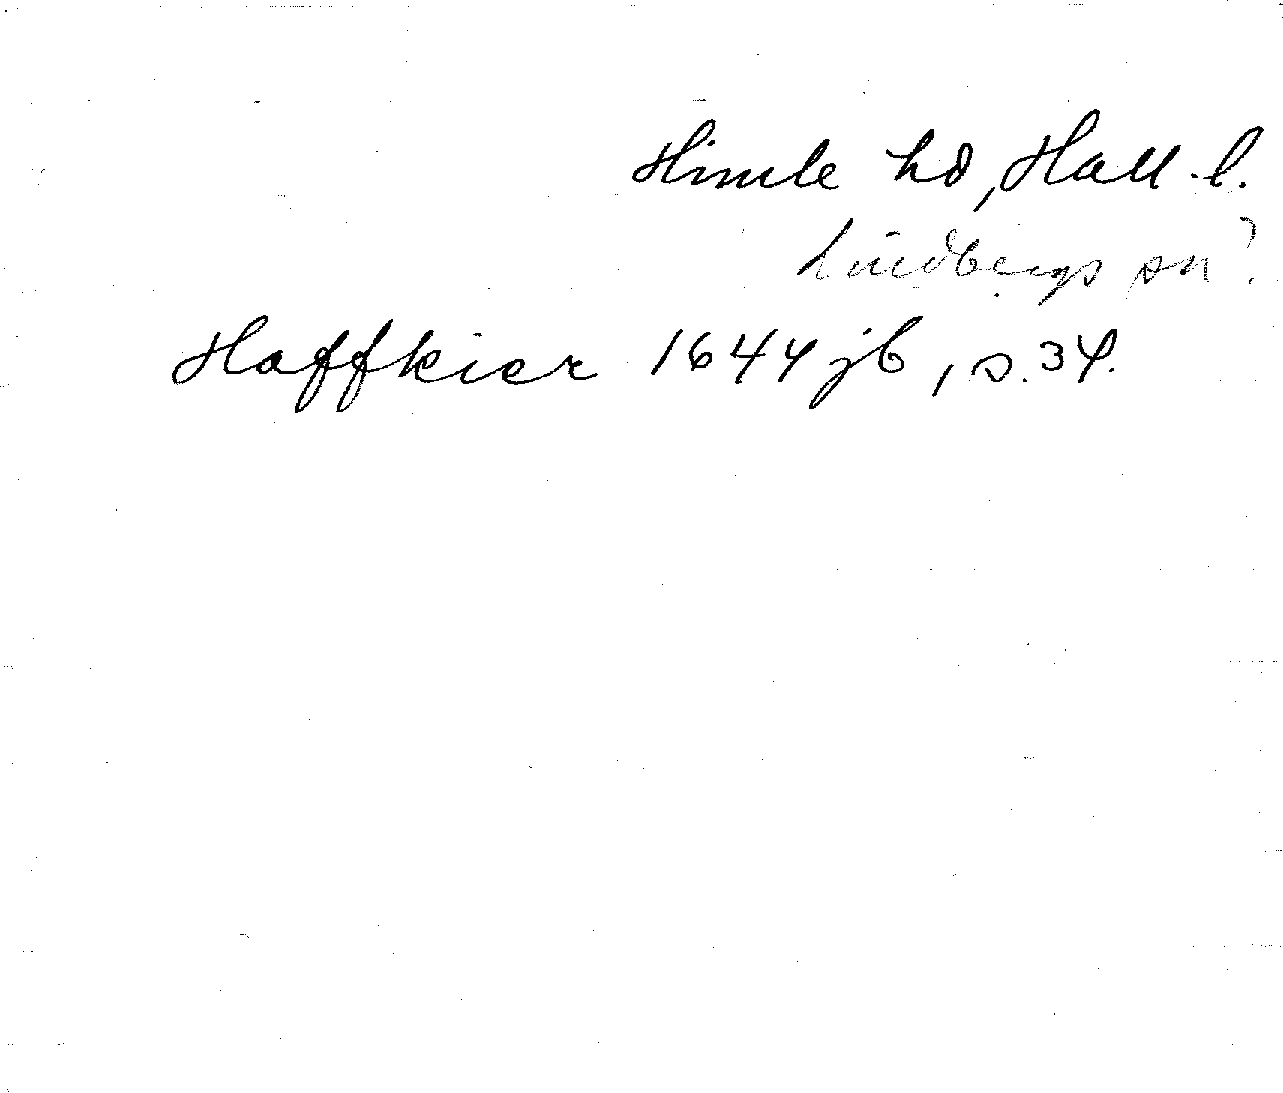 Himle hd, Hall. l.
Lindbergs sn?
Haffkier 1644 jb, s. 34.